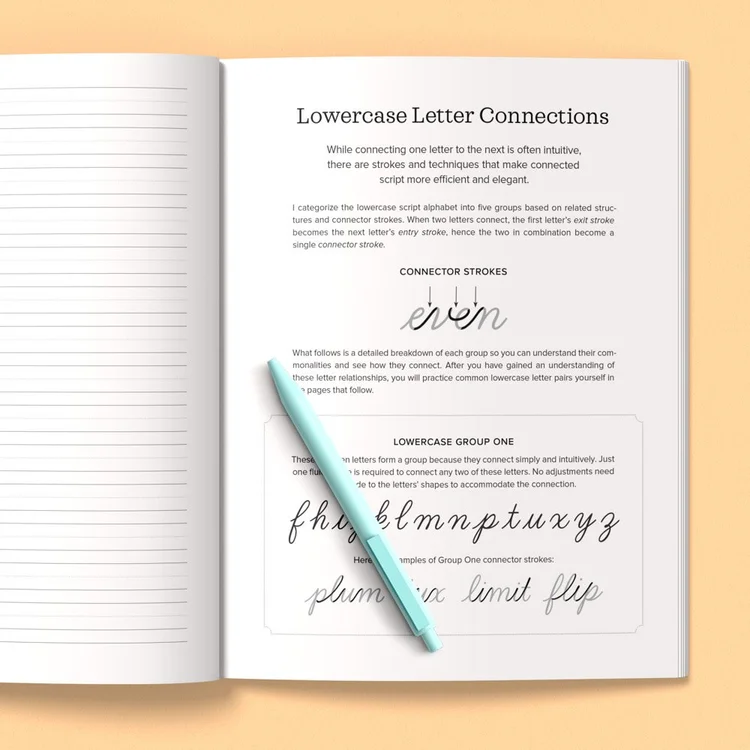 Lowercase Letter Connections
While connecting one letter to the next is often intuitive,
there are strokes and techniques that make connected
script more efficient and elegant.
I categorize the lowercase script alphabet into five groups based on related struc-
tures and connector strokes. When two letters connect, the first letter's exit stroke
becomes the next letter's entry stroke, hence the two in combination become a
single connector stroke.
CONNECTOR STROKES
even
What follows is a detailed breakdown of each group so you can understand their com-
monalities and see how they connect. After you have gained an understanding of
these letter relationships, you will practice common lowercase letter pairs yourself in
pages that follow.
LOWERCASE GROUP ONE
letters form a group because they connect simply and intuitively. Just
one is required to connect any two of these letters. No adjustments need
to the letters' shapes to accommodate the connection.
f h i k l m n p t u x y z
Here of Group One connector strokes:
plum limit flip